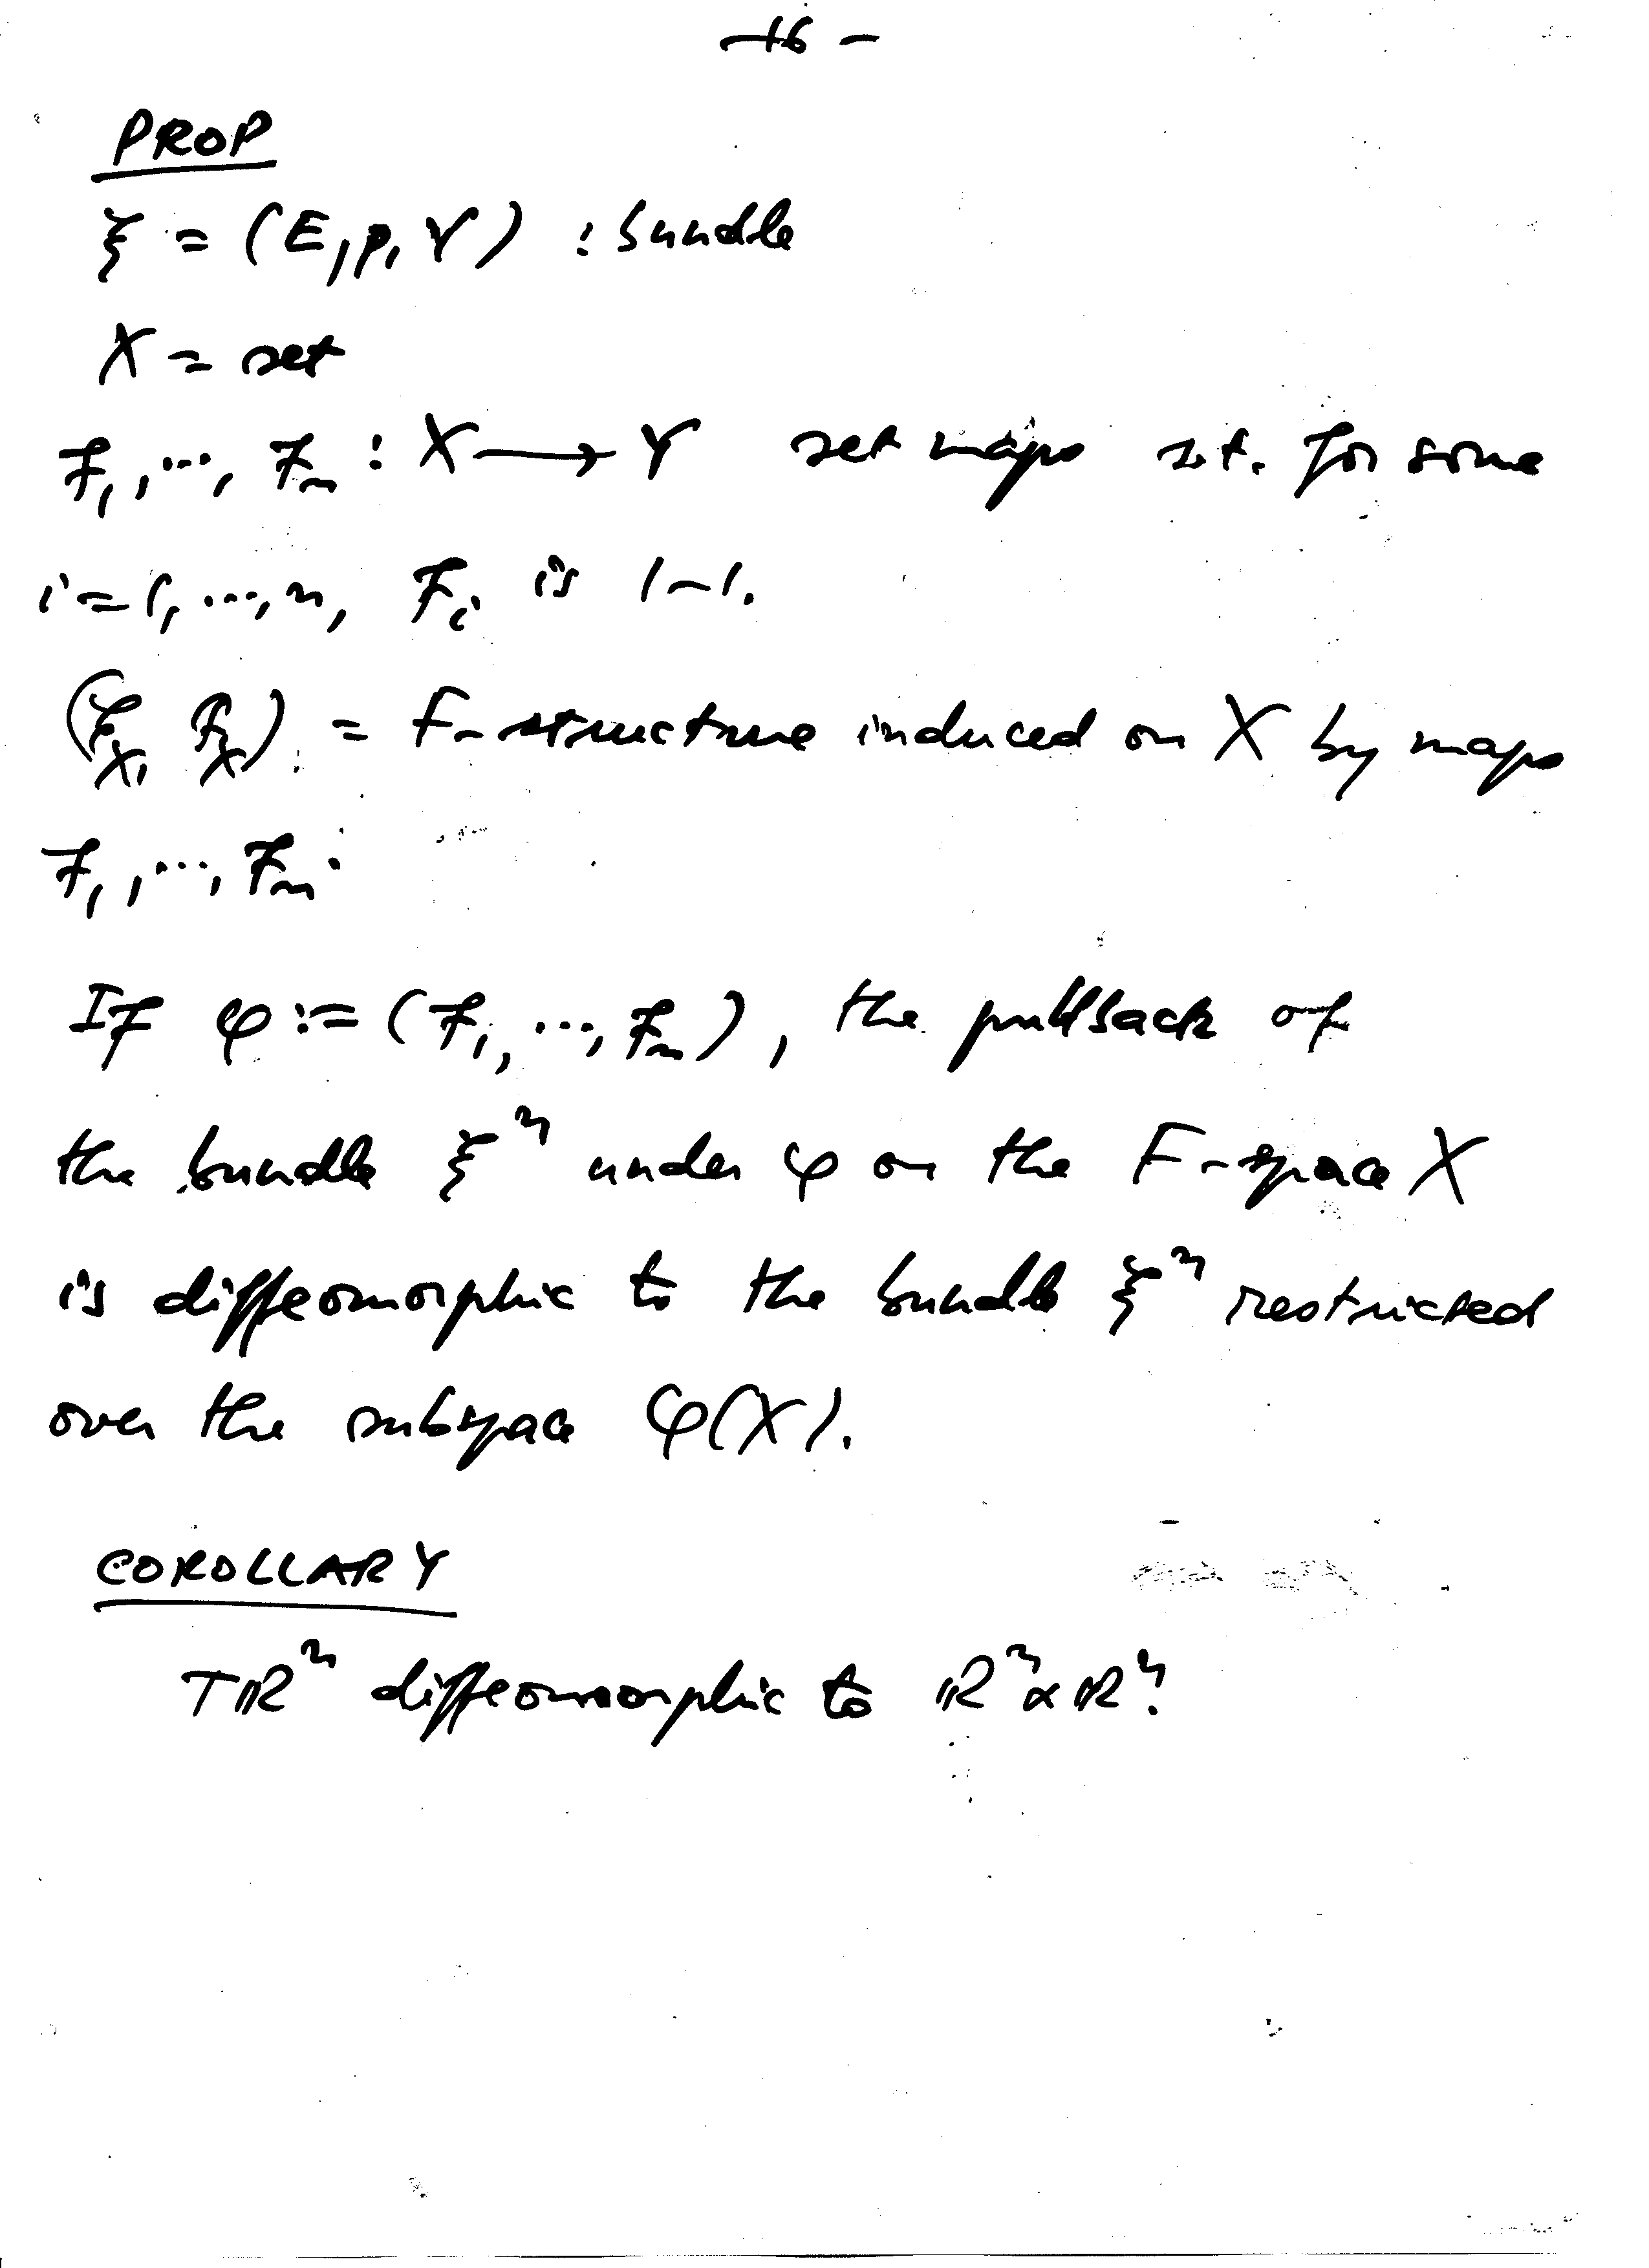 -16-
PROP
ξ = (E, p, Y) : bundle
X = set
F₁, ..., Fₙ : X → Y set maps s.t. for some
i = 1, ..., n, Fᵢ is 1-1.
= F-structure induced on X by maps
F₁, ..., Fₙ.
If φ := (F₁, ..., Fₙ), the pullback of
the bundle ξⁿ under φ on the F-space X
is diffeomorphic to the bundle ξⁿ restricted
over the subspace φ(X).
COROLLARY
Tℝⁿ diffeomorphic to ℝⁿ×ℝⁿ?